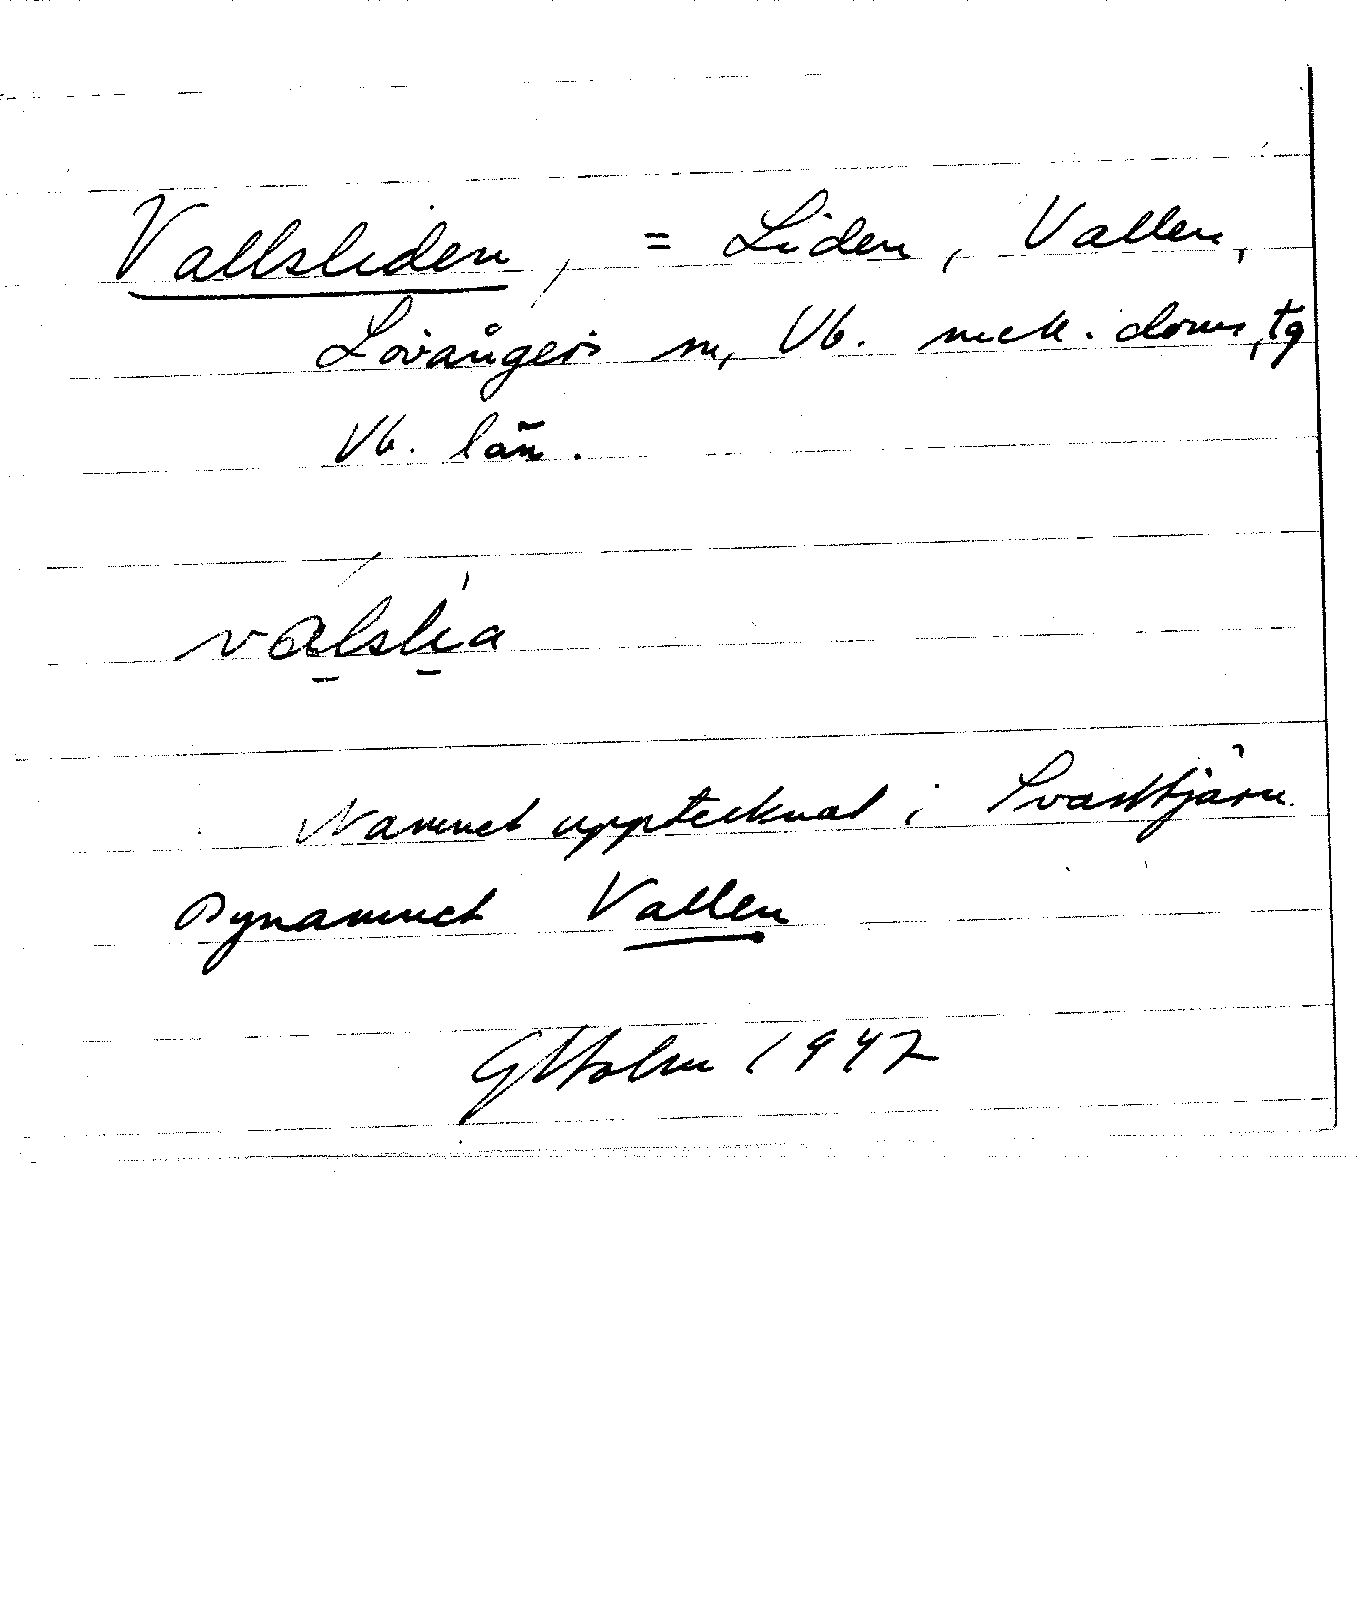 Vallsliden, = Liden, Vallen,
Lövångers sn, Vb. mell. doms, tg
Vb. län.
válslía
Namnet upptecknat i Svarttjärn.
Bynamnet Vallen
G Holm 1947